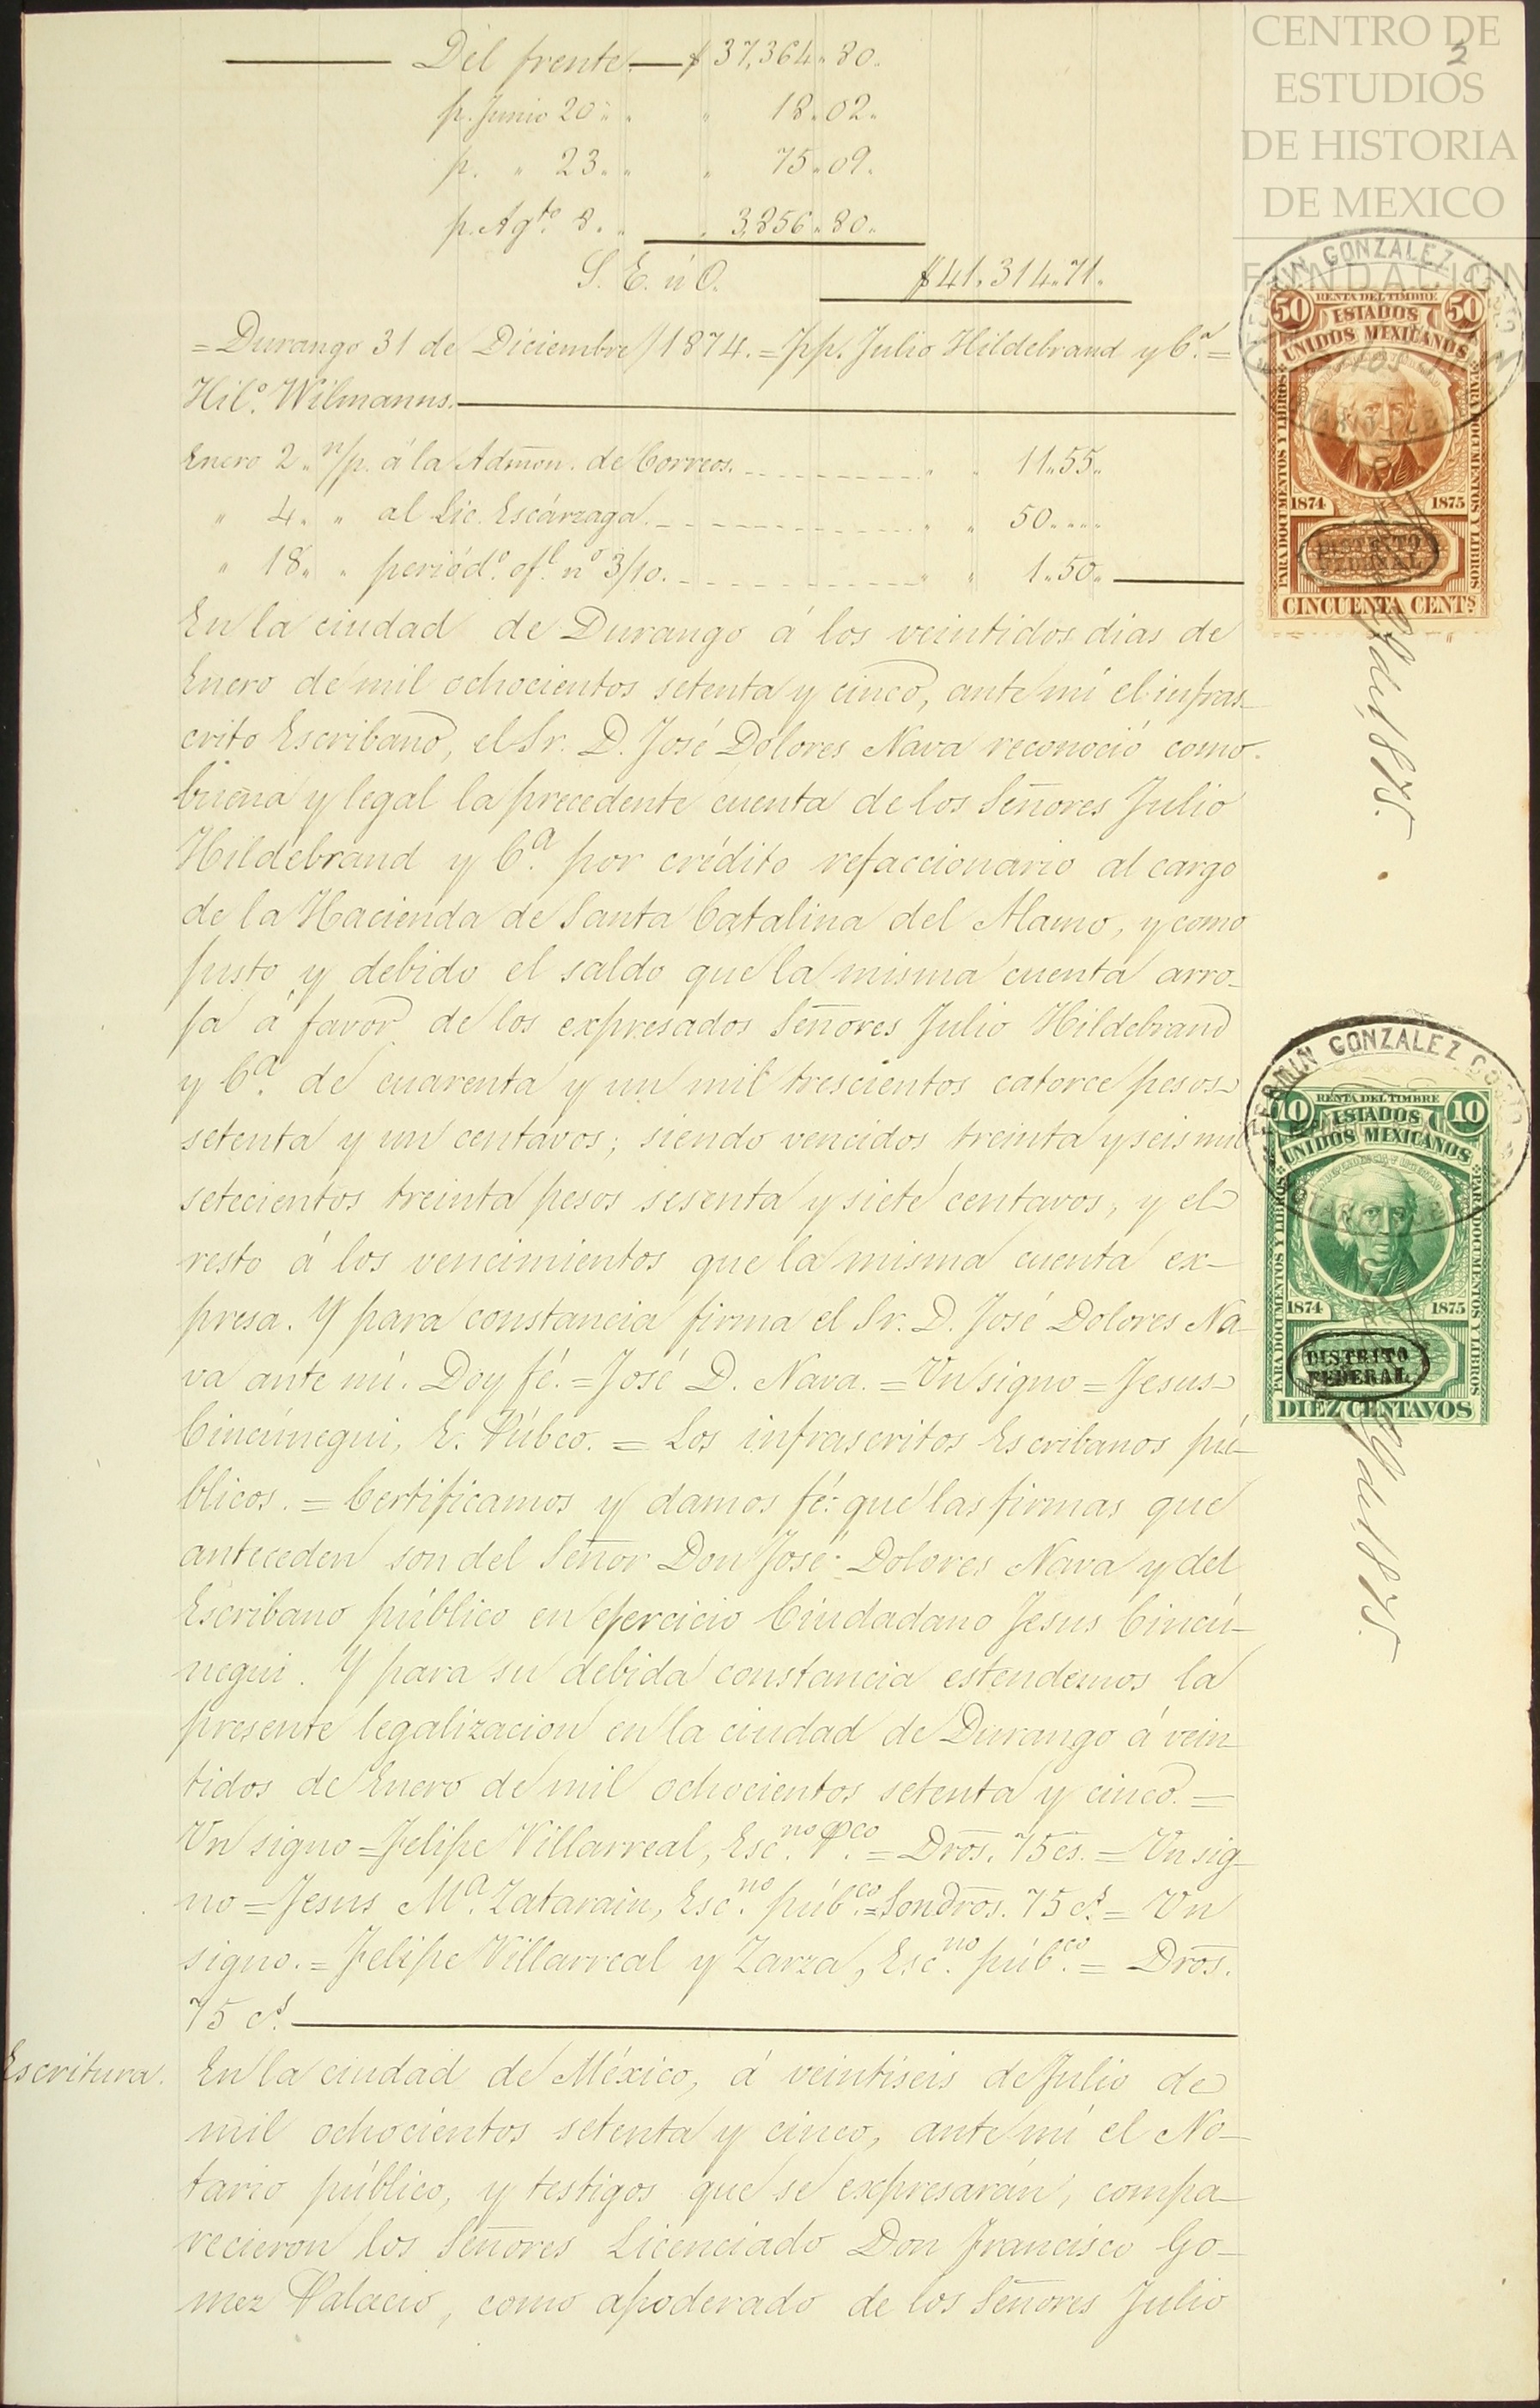 CENTRO DE
ESTUDIOS
DE HISTORIA
DE MEXICO
FUNDACION
2
Del frente. $ 37,364 " 80.
p. Junio 20 " " " 18 " 02 "
p. " 23 " " " 75 " 09.
p. Agto. 8. " " 3,856 " 80 "
S. E. ú O. $ 41,314 " 71.
= Durango 31 de Diciembre / 1874. = pp. Julio Hildebrand y Ca. =
Hilo. Wilmanns.
Enero 2 " n/p. á la Admon. de Correos. " " 11 " 55 "
" 4 " " al Lic. Escárzaga. " " 50 " " "
" 18 " " periódo. ofl. no 3/10. " " 1 " 50 "
En la ciudad de Durango á los veintidos dias de
Enero de mil ochocientos setenta y cinco, ante mí el infras-
crito Escribano, el Sr. D. José Dolores Nava reconoció como
buena y legal la precedente cuenta de los Señores Julio
Hildebrand y Ca. por crédito refaccionario al cargo
de la Hacienda de Santa Catalina del Alamo, y como
justo y debido el saldo que la misma cuenta arro-
ja á favor de los expresados Señores Julio Hildebrand
y Ca. de cuarenta y un mil trescientos catorce pesos
setenta y un centavos; siendo vencidos treinta y seis mil
setecientos treinta pesos sesenta y siete centavos, y el
resto á los vencimientos que la misma cuenta ex-
presa. Y para constancia firma el Sr. D. José Dolores Na-
va ante mí. Doy fé. = José D. Nava. = Un signo = Jesus
Cincúnegui, E. Púbco. = Los infrascritos Escribanos pú-
blicos. = Certificamos y damos fé: que las firmas que
anteceden son del Señor Don José Dolores Nava y del
Escribano público en ejercicio Ciudadano Jesus Cincú-
negui. Y para su debida constancia estendemos la
presente legalizacion en la ciudad de Durango á vein-
tidos de Enero de mil ochocientos setenta y cinco. =
Un signo = Felipe Villarreal, Escno. Pco. = Dros. 75 cs. = Un sig-
no = Jesus Ma. Zatarain, Escno. púbco. = Son dros. 75 cs. = Un
signo. = Felipe Villarreal y Zarza, Escno. púbco. = Dros.
75 cs.
Escritura. En la ciudad de México, á veintiseis de Julio de
mil ochocientos setenta y cinco, ante mí el No-
tario público, y testigos que se expresarán, compa-
recieron los Señores Licenciado Don Francisco Go-
mez Palacio, como apoderado de los Señores Julio
FERMIN GONZALEZ
50 50
RENTA DEL TIMBRE
ESTADOS
UNIDOS MEXICANOS
PARA DOCUMENTOS Y LIBROS
PARA DOCUMENTOS Y LIBROS
1874 1875
DISTRITO
FEDERAL
CINCUENTA CENTS
1875.
FERMIN GONZALEZ COSIO
10 10
RENTA DEL TIMBRE
ESTADOS
UNIDOS MEXICANOS
PARA DOCUMENTOS Y LIBROS
PARA DOCUMENTOS Y LIBROS
1874 1875
DISTRITO
FEDERAL
DIEZ CENTAVOS
1875.